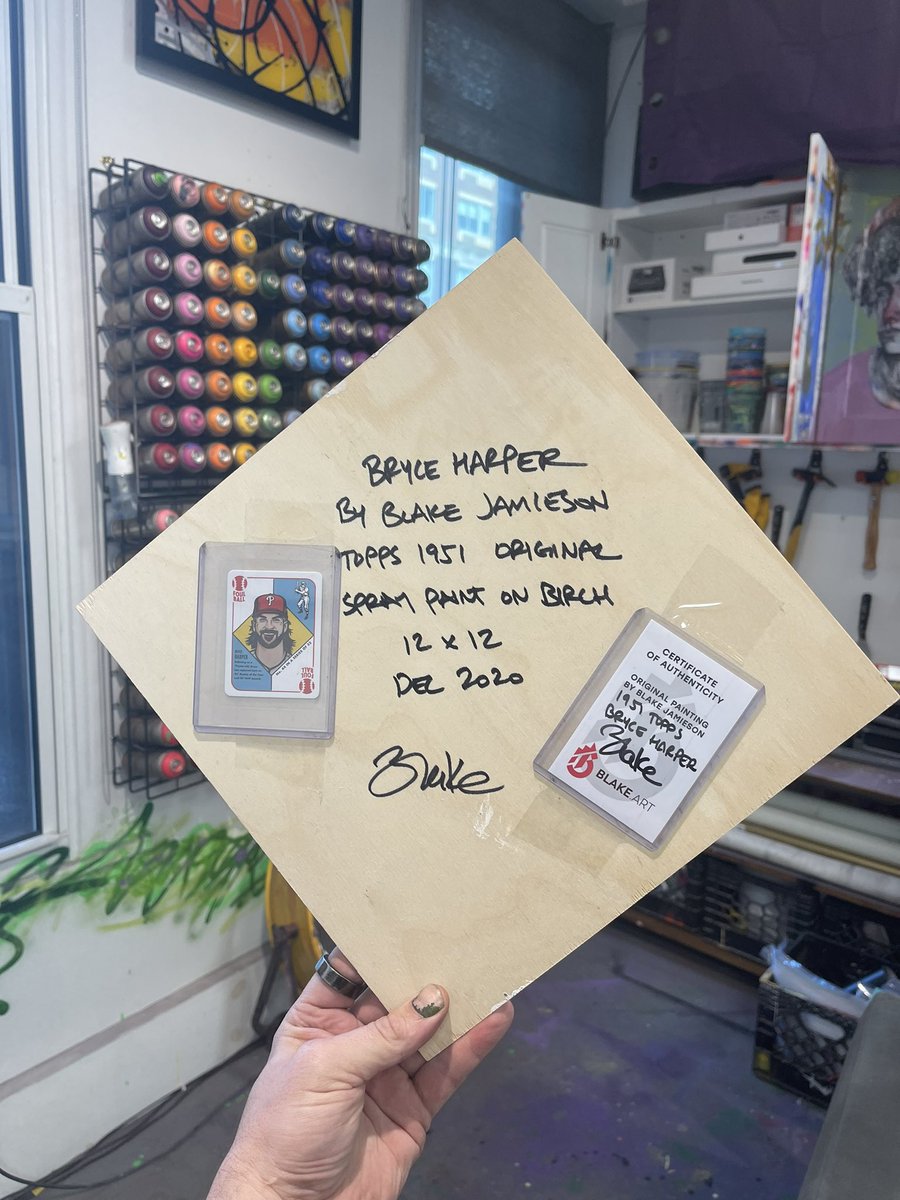 BRYCE HARPER
BY BLAKE JAMIESON
TOPPS 1951 ORIGINAL
SPRAY PAINT ON BIRCH
12 x 12
DEC 2020
Blake
FOUL
BALL
P
HARPER
FOUL
BALL
CERTIFICATE
OF AUTHENTICITY
ORIGINAL PAINTING
BY BLAKE JAMIESON
1951 TOPPS
BRYCE HARPER
Blake
BLAKE.ART